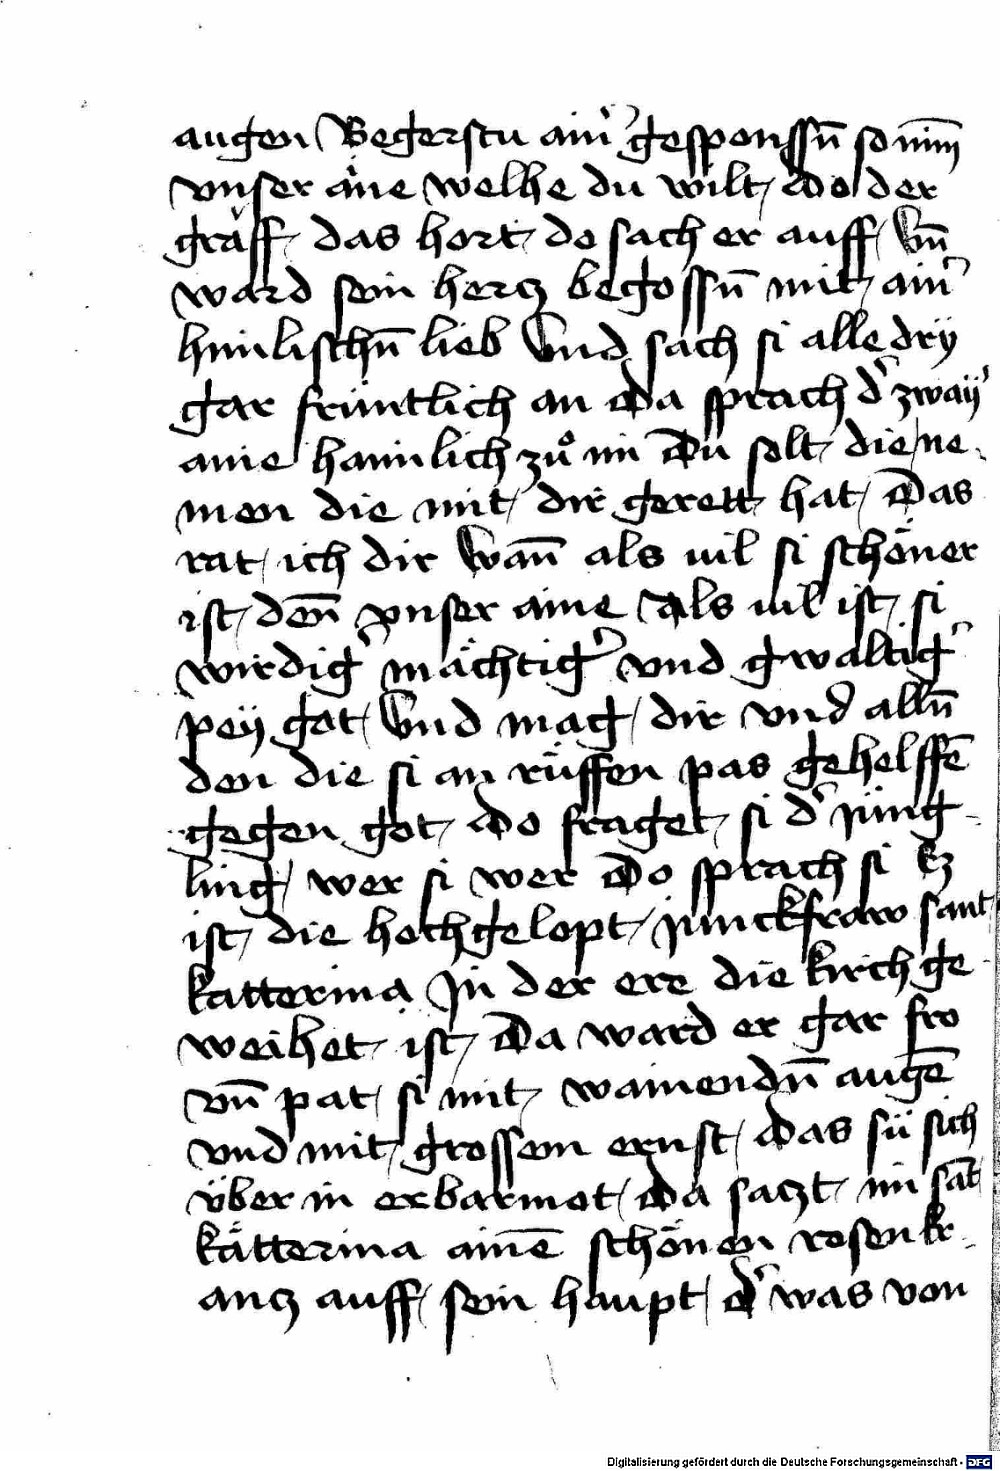 augen Begerstu ainˀ gesponssn̄ so nim̄
vnser ane welhe du wilt / Do der
gräff / das hort / do sach er auff / Vn̄
ward sein hercz begossn̄ mit / ainˀ
himlischn̄ lieb Vnd sach si alle drÿ
gar früntlich an Da sprach dˀ zwaÿˀ
anie hainlich zuͦ im Du solt / die ne-
men die mit / dir gerett / hat / Das
rat / ich dir Wan̄ als uil si schöner
ist / den̄ vnser aine Als uil ist / si
wirdigˀ mächtigˀ vnd gwaltigˀ
peÿ got / Vnd mag / dir vnd alln̄
den die si an rüffen pas gehelffē
gegen got / Do fraget / si dˀ jüng-
ling / wer si wer Do sprach si Ez
ist / die hochgelopt / junckfraw sant
katterina In der ere die kirch ge-
weihet / ist / Da ward er gar fro
vn̄ pat / si mit / wainendn̄ augē
vnd mit / grossem ernst / das sü sich
über in erbarmot / Da saczt / im sāt
kätterina ainē schönen rosenkr-
ancz auff / sein haupt / dˀ was von
Digitalisierung gefördert durch die Deutsche Forschungsgemeinschaft - DFG